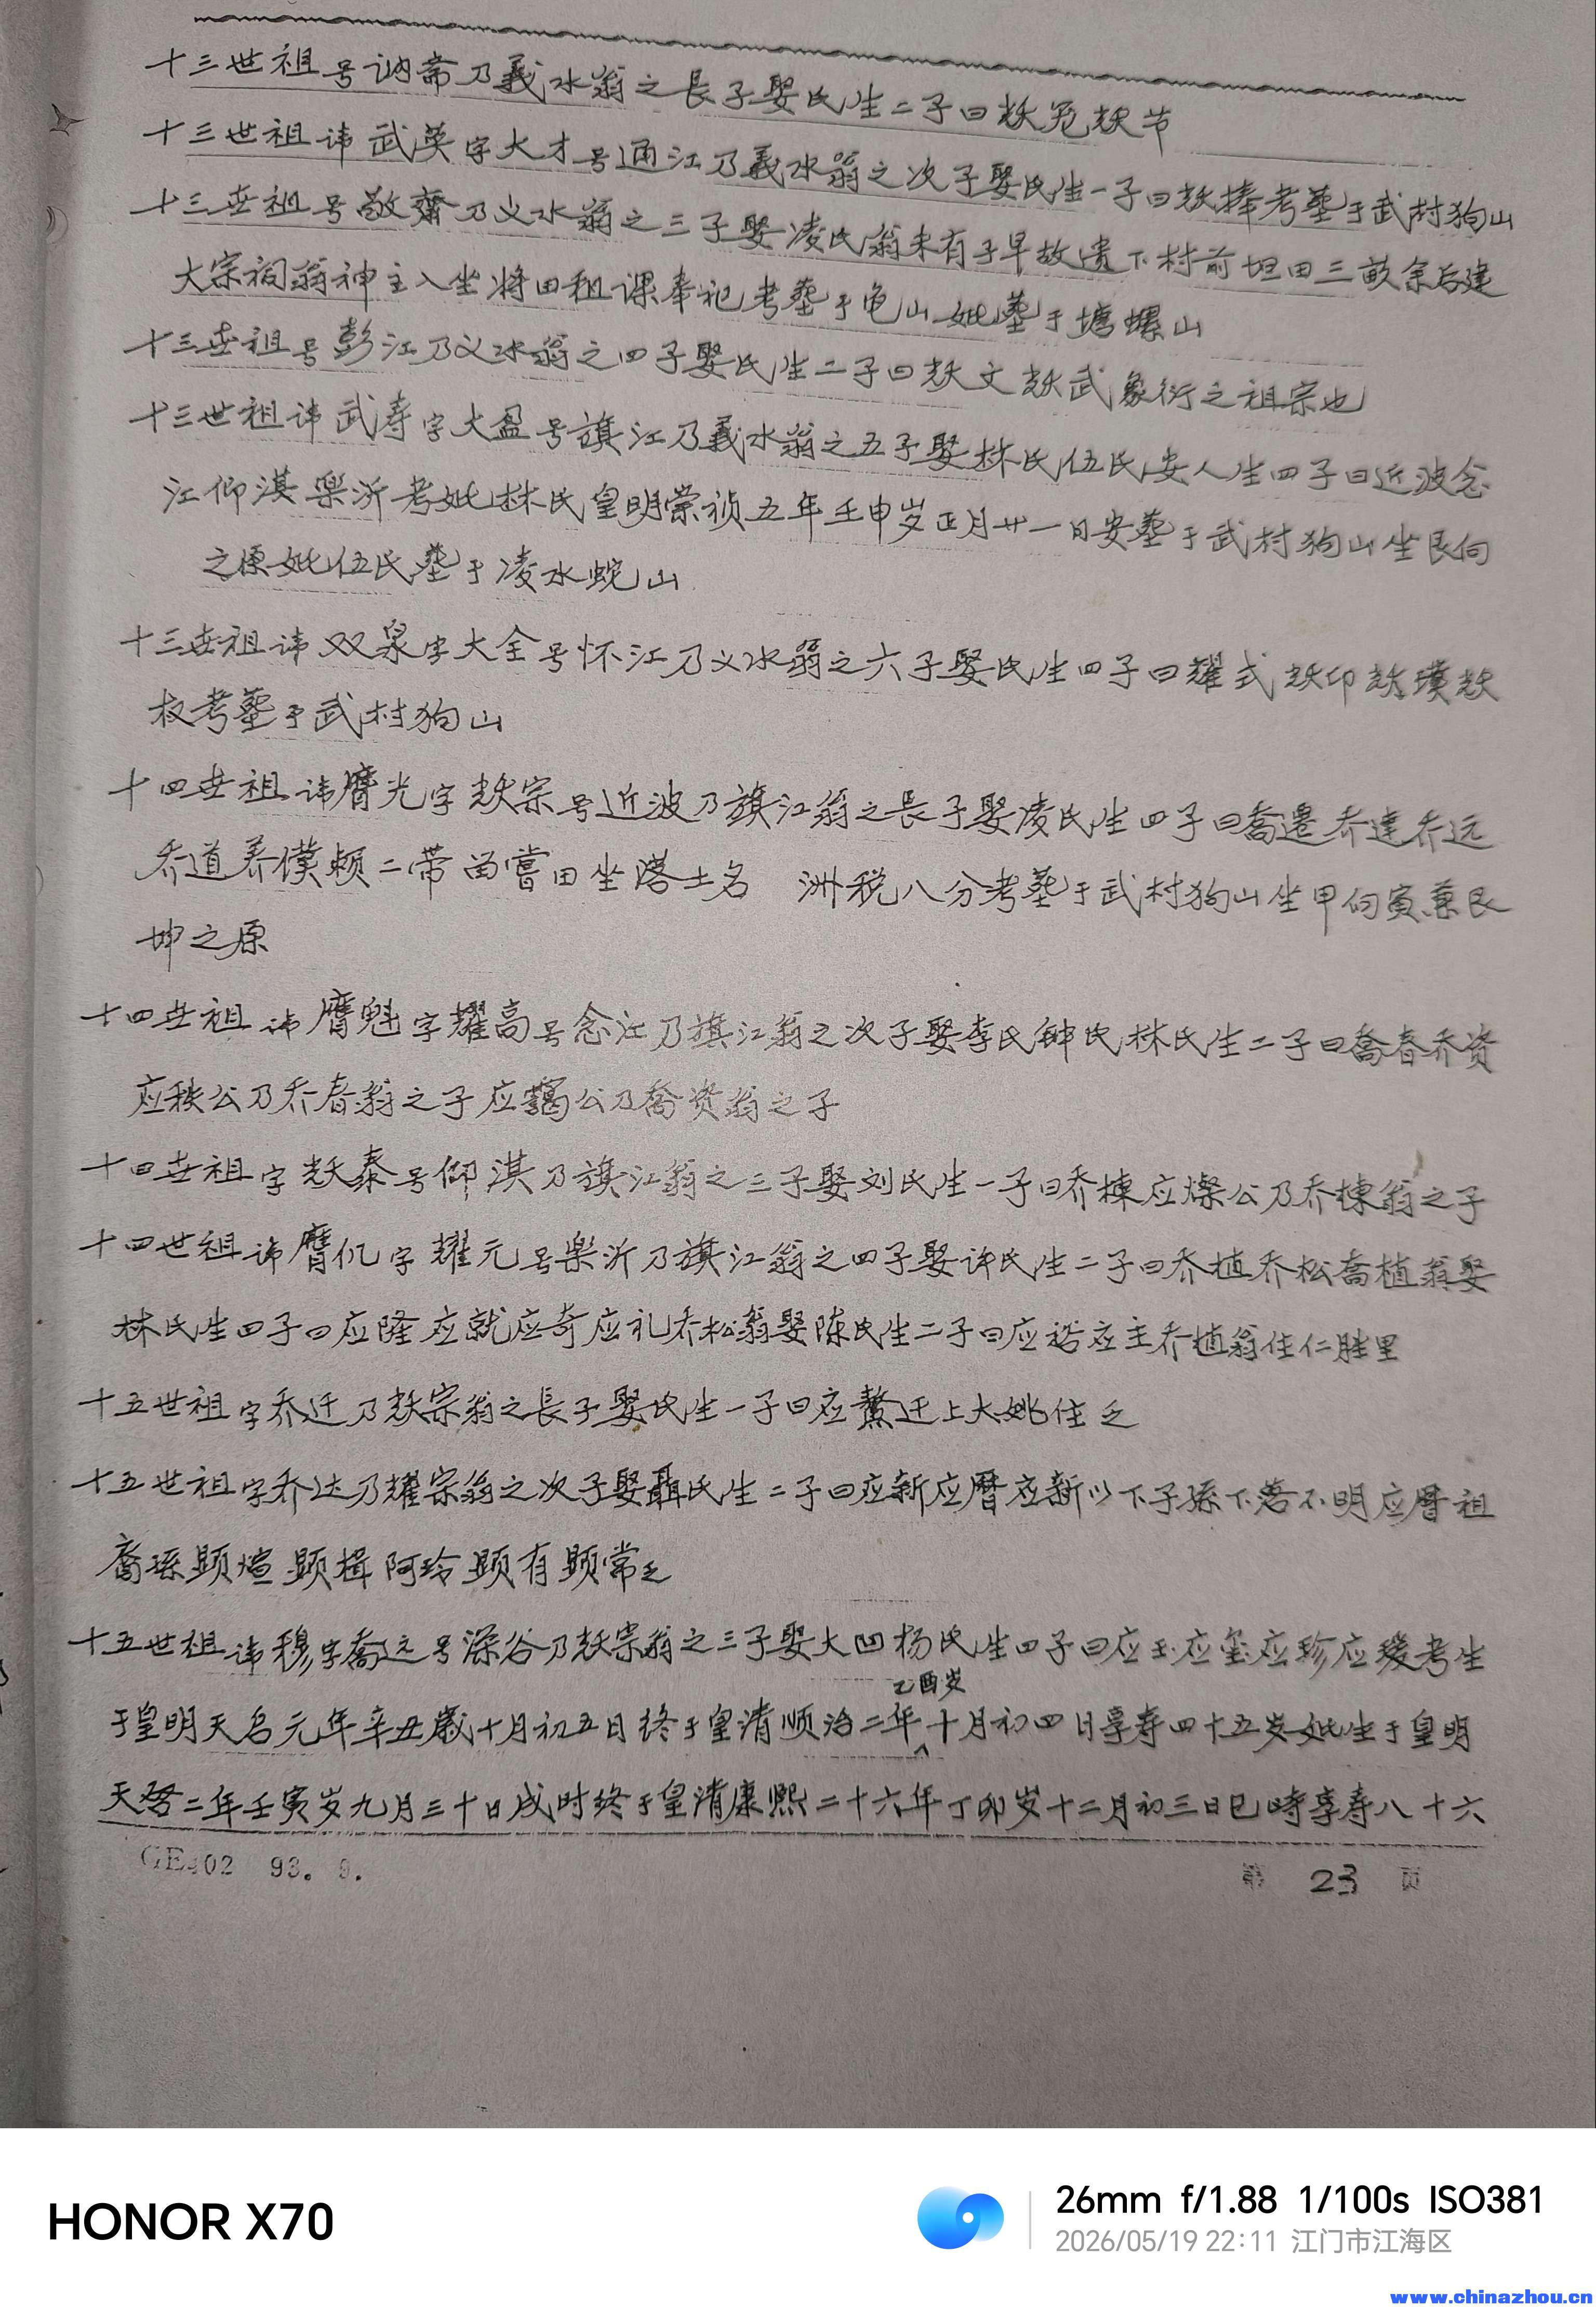 十三世祖号讷斋乃義水翁之長子娶氏生二子曰耀冕耀节
十三世祖讳武英字大才号通江乃義水翁之次子娶氏生一子曰耀捧考墓于武村狗山
十三世祖号敬齋乃义水翁之三子娶凌氏翁未有子早故遗下村前坦田三畝余后建
大宗祠翁神主入坐将田租课奉祀考墓于龟山妣墓于塘螺山
十三世祖号彭江乃义水翁之四子娶氏生二子曰耀文耀武象衍之祖宗也
十三世祖讳武寿字大盈号旗江乃義水翁之五子娶林氏伍氏安人生四子曰近波念
江仰淇樂沂考妣林氏皇明崇祯五年壬申岁正月廿一日安墓于武村狗山坐艮向
之原妣伍氏墓于凌水蛇山
十三世祖讳双泉字大全号怀江乃义水翁之六子娶氏生四子曰耀式耀印耀璞耀
权考墓于武村狗山
十四世祖讳膺光字耀宗号近波乃旗江翁之長子娶凌氏生四子曰喬遷乔達乔远
乔道养僕赖二带亩嘗田坐落土名 洲税八分考墓于武村狗山坐甲向寅兼艮
坤之原
十四世祖讳膺魁字耀高号念江乃旗江翁之次子娶李氏钟氏林氏生二子曰喬春乔资
应秩公乃乔春翁之子应藹公乃喬资翁之子
十四世祖字耀泰号仰淇乃旗江翁之三子娶刘氏生一子曰乔棟应燦公乃乔棟翁之子
十四世祖讳膺仉字耀元号樂沂乃旗江翁之四子娶许氏生二子曰乔植乔松喬植翁娶
林氏生四子曰应隆应就应奇应礼乔松翁娶陈氏生二子曰应裕应主乔植翁住仁胜里
十五世祖字乔迁乃耀宗翁之長子娶氏生一子曰应鰲迁上大姚住之
十五世祖字乔达乃耀宗翁之次子娶聶氏生二子曰应新应曆应新以下子孫下落不明应曆祖
裔孫顕煊顕楫阿玲顕有顕常之
十五世祖讳穆字喬远号深谷乃耀宗翁之三子娶大凹杨氏生四子曰应玉应玺应珍应瑷考生
乙酉岁
于皇明天启元年辛丑歲十月初五日终于皇清顺治二年十月初四日享寿四十五岁妣生于皇明
天啓二年壬寅岁九月三十日戌时终于皇清康熙二十六年丁卯岁十二月初三日巳時享寿八十六
GE402 93. 9.
第 23 页
HONOR X70
26mm f/1.88 1/100s ISO381
2026/05/19 22:11 江门市江海区
www.chinazhou.cn